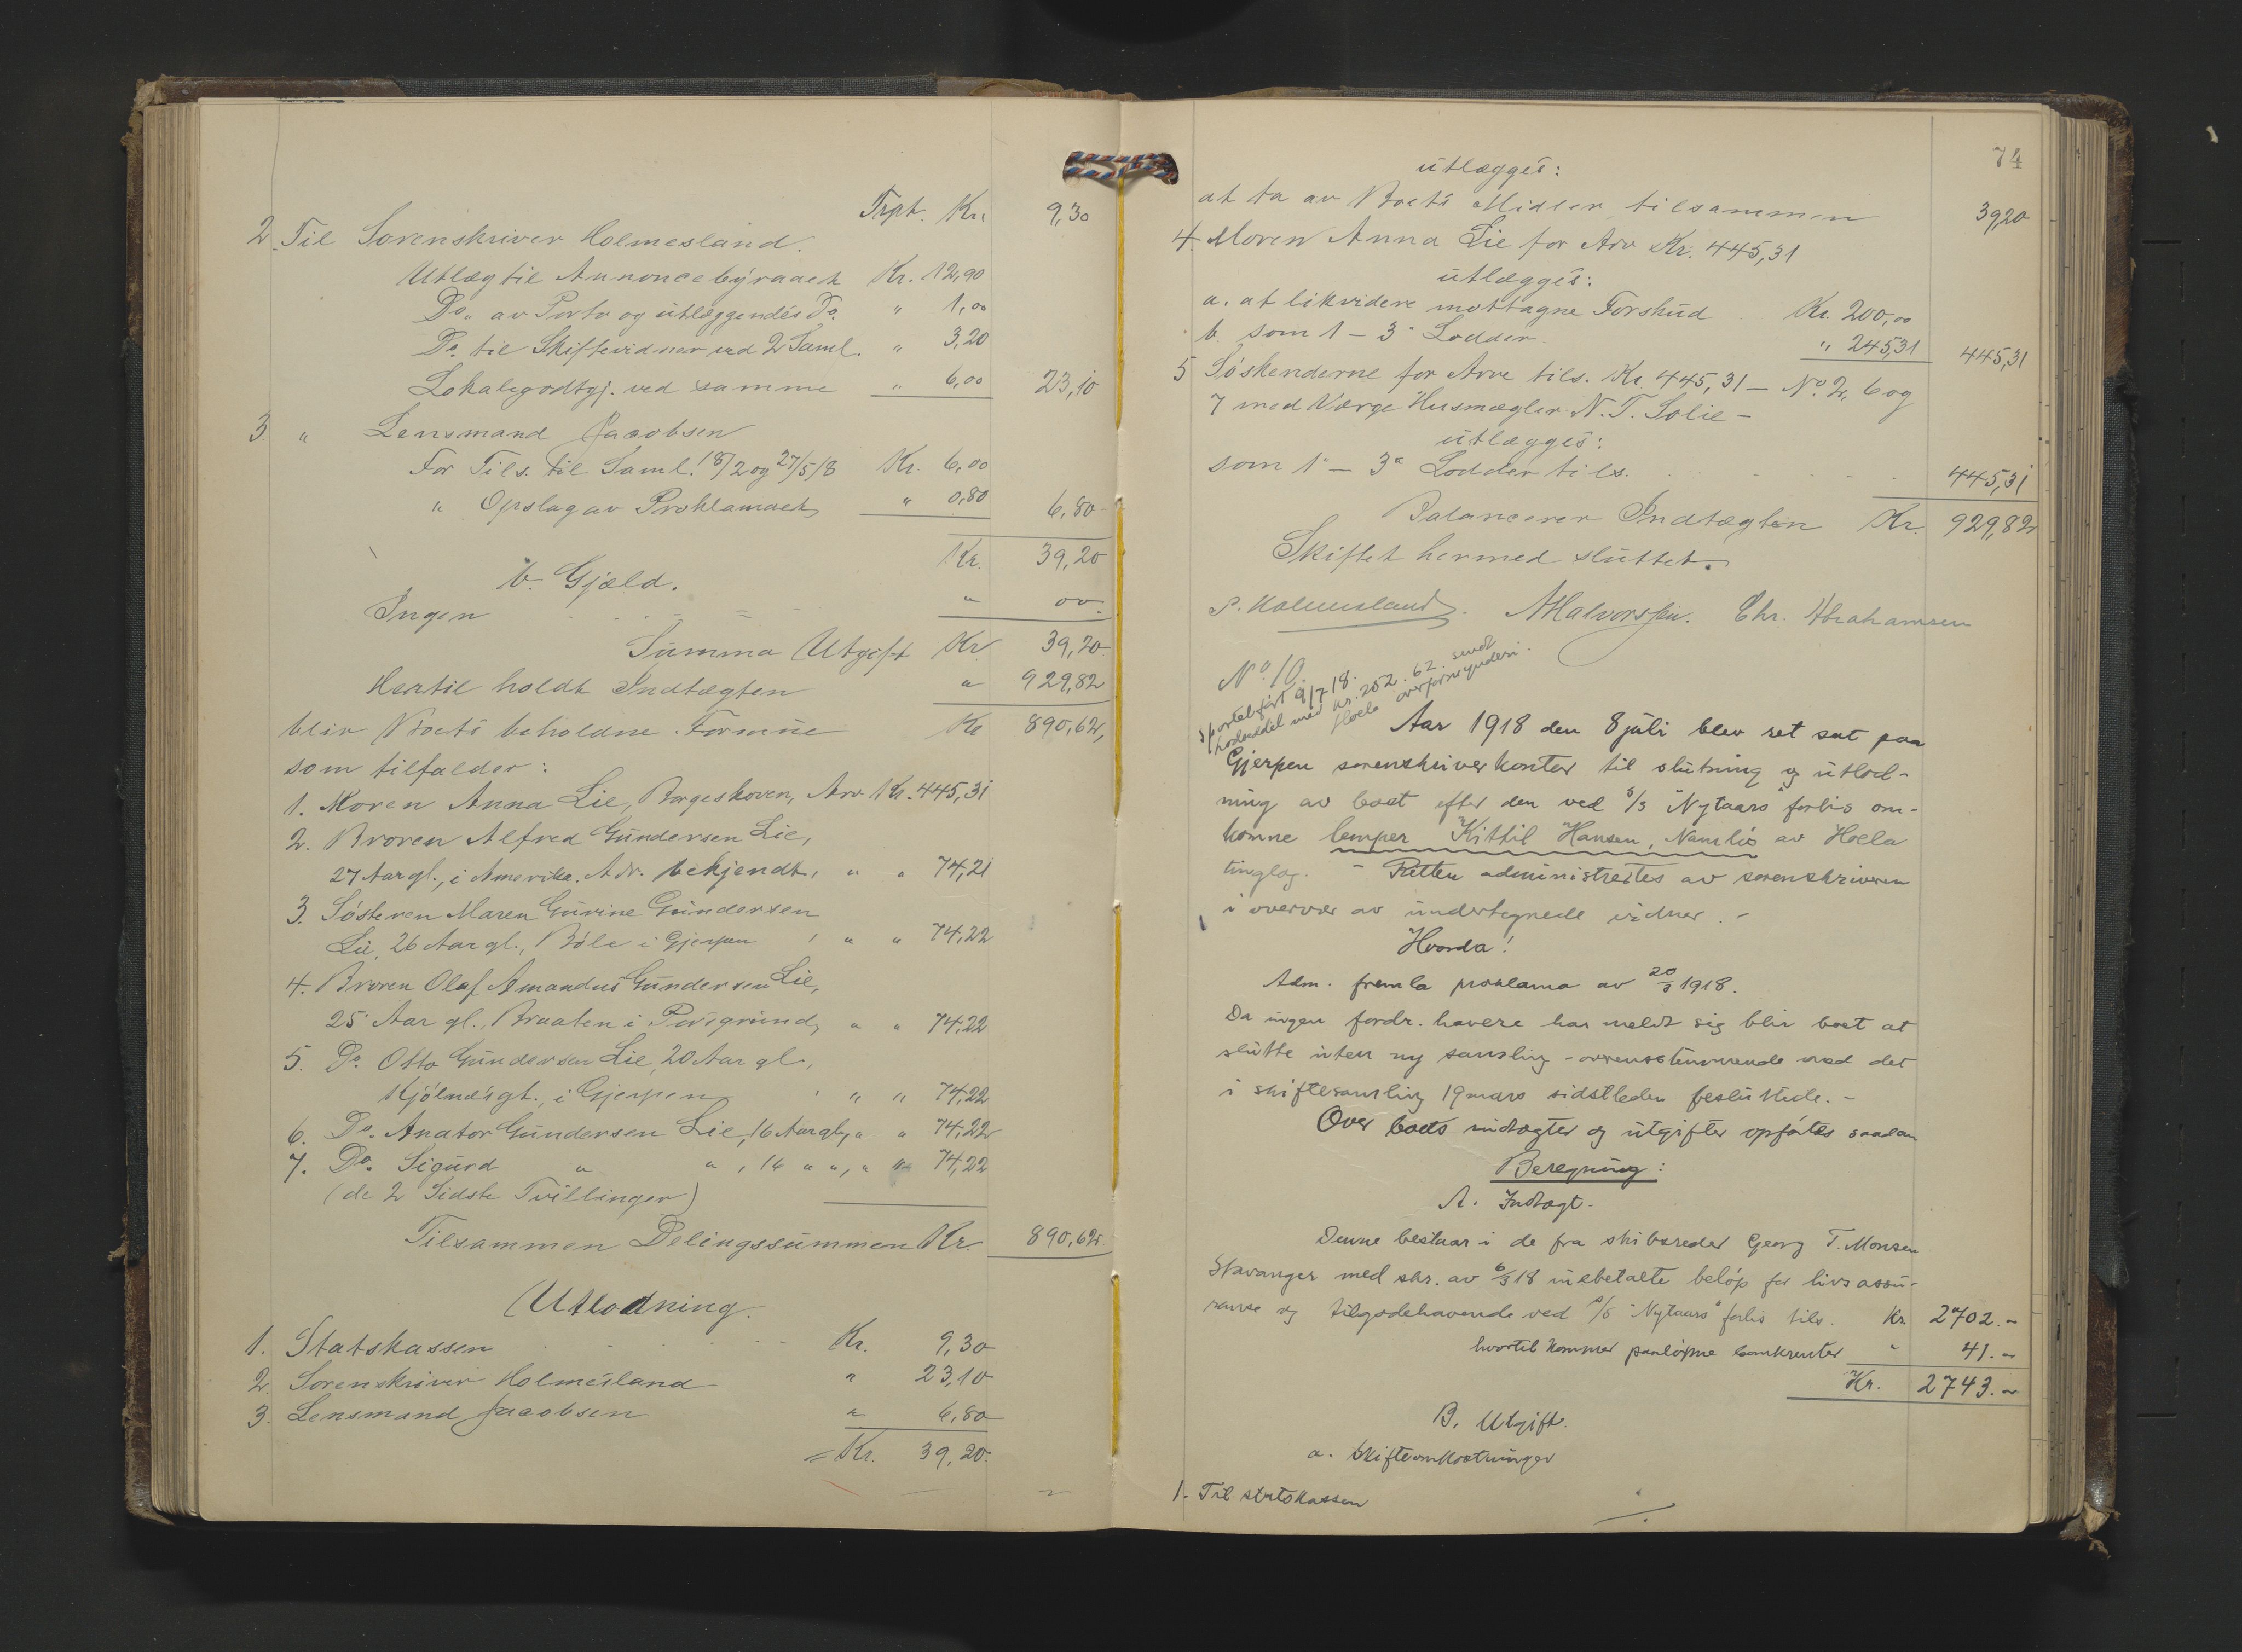 Trpt. Kr. 9,30
2. Til Sorenskriver Holmesland.
Utlæg til Annoncebyraaet Kr. 12,90
Do. av Porto og utlæggendes Do. " 1,00
Do. til Skiftevidner ved 2 Saml. " 3,20
Lokalegodtgj. ved samme " 6,00 23,10
3. " Lensmand Jacobsen
For Tils. til Saml. 18/2 og 27/5/8 Kr. 6,00
" Opslag av Proklamaet " 0,80 6,80
Kr. 39,20
b. Gjæld.
Ingen " 00
Summa Utgift Kr. 39,20
Hertil holdt Indtægten " 929,82
blir Boets beholdne Formue Kr. 890,62,
som tilfalder:
1. Moren Anna Lie, Borgeskoven, Arv Kr. 445,31
2. Broren Alfred Gundersen Lie,
27 Aar gl., i Amerika. Adr. bekjendt, " " 74,21
3. Søsteren Maren Gurine Gundersen
Lie, 26 Aar gl., Bøle i Gjerpen, " " 74,22
4. Broren Olaf Amandus Gundersen Lie,
25 Aar gl., Braaten i Porsgrund, " " 74,22
5. Do. Otto Gundersen Lie, 20 Aar gl.,
Kjølnesgt., i Gjerpen, " " 74,22
6. Do. Anator Gundersen Lie, 16 Aar gl., " " 74,22
7. Do. Sigurd " " , 16 " ", " " 74,22
(de 2 Sidste Tvillinger)
Tilsammen Delingssummen Kr. 890,62
Utlodning.
1. Statskassen Kr. 9,30
2. Sorenskriver Holmesland " 23,10
3. Lensmand Jacobsen " 6,80
= Kr. 39,20
74
utlægges:
at ta av Boets Midler tilsammen 39,20
4. Moren Anna Lie for Arv Kr. 445,31
utlægges:
a. at likvidere mottagne Forskud Kr. 200,00
b. som 1 - 3 Lodder. " 245,31 445,31
5 Søskenderne for Arve tils. Kr. 445,31 - No. 2, 6 og
7 med Værge Husmægler N. T. Solie -
utlægges:
som 1 - 3 Lodder tils. 445,31
Balancerer Indtægten Kr. 929,82
Skiftet hermed sluttet.
P. Holmesland. A Halvorsen. Chr. Abrahamsen
No. 10.
Sportelført 9/7 18.
hovedddel med kr. 252.62 sendt
Hoela overformynderi.
Aar 1918 den 8 juli blev ret sat paa
Gjerpen sorenskriverkontor til slutning og utlod-
ning av boet efter den ved s/s "Nytaars" forlis om-
komne lemper Kittil Hansen, Namløs av Hoela
tinglag. - Retten administrertes av sorenskriveren
i overvær av undertegnede vidner. -
Hvorda!
Adm. fremla proklama av 20/3 1918.
Da ingen fordr. havere har meldt sig blir boet at
slutte uten ny samling - overensstemmende med det
i skiftesamling 19 mars sidstleden besluttede. -
Over boets indtægter og utgifter opførtes saadan
Beregning:
A. Indtægt.
Denne bestaar i de fra skibsreder Georg T. Monsen
Stavanger med skr. av 6/3 18 indbetalte beløp for livsassu-
ranse og tilgodehavende ved s/s "Nytaars" forlis tils. Kr. 2702.-
hvortil kommer paaløpne bankrenter " 41.-
Kr. 2743.-
B. Utgift.
a. Skifteomkostninger
1. Til statskassen